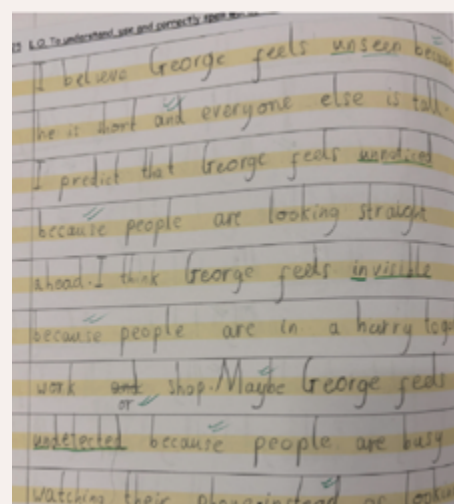 L.O. To understand, use and correctly spell
I believe George feels unseen because
he is short and everyone else is tall.
I predict that George feels unnoticed
because people are looking straight
ahead. I think George feels invisible
because people are in a hurry to go
work and shop. Maybe George feels
or
undetected because people are busy
watching their phone instead of looking